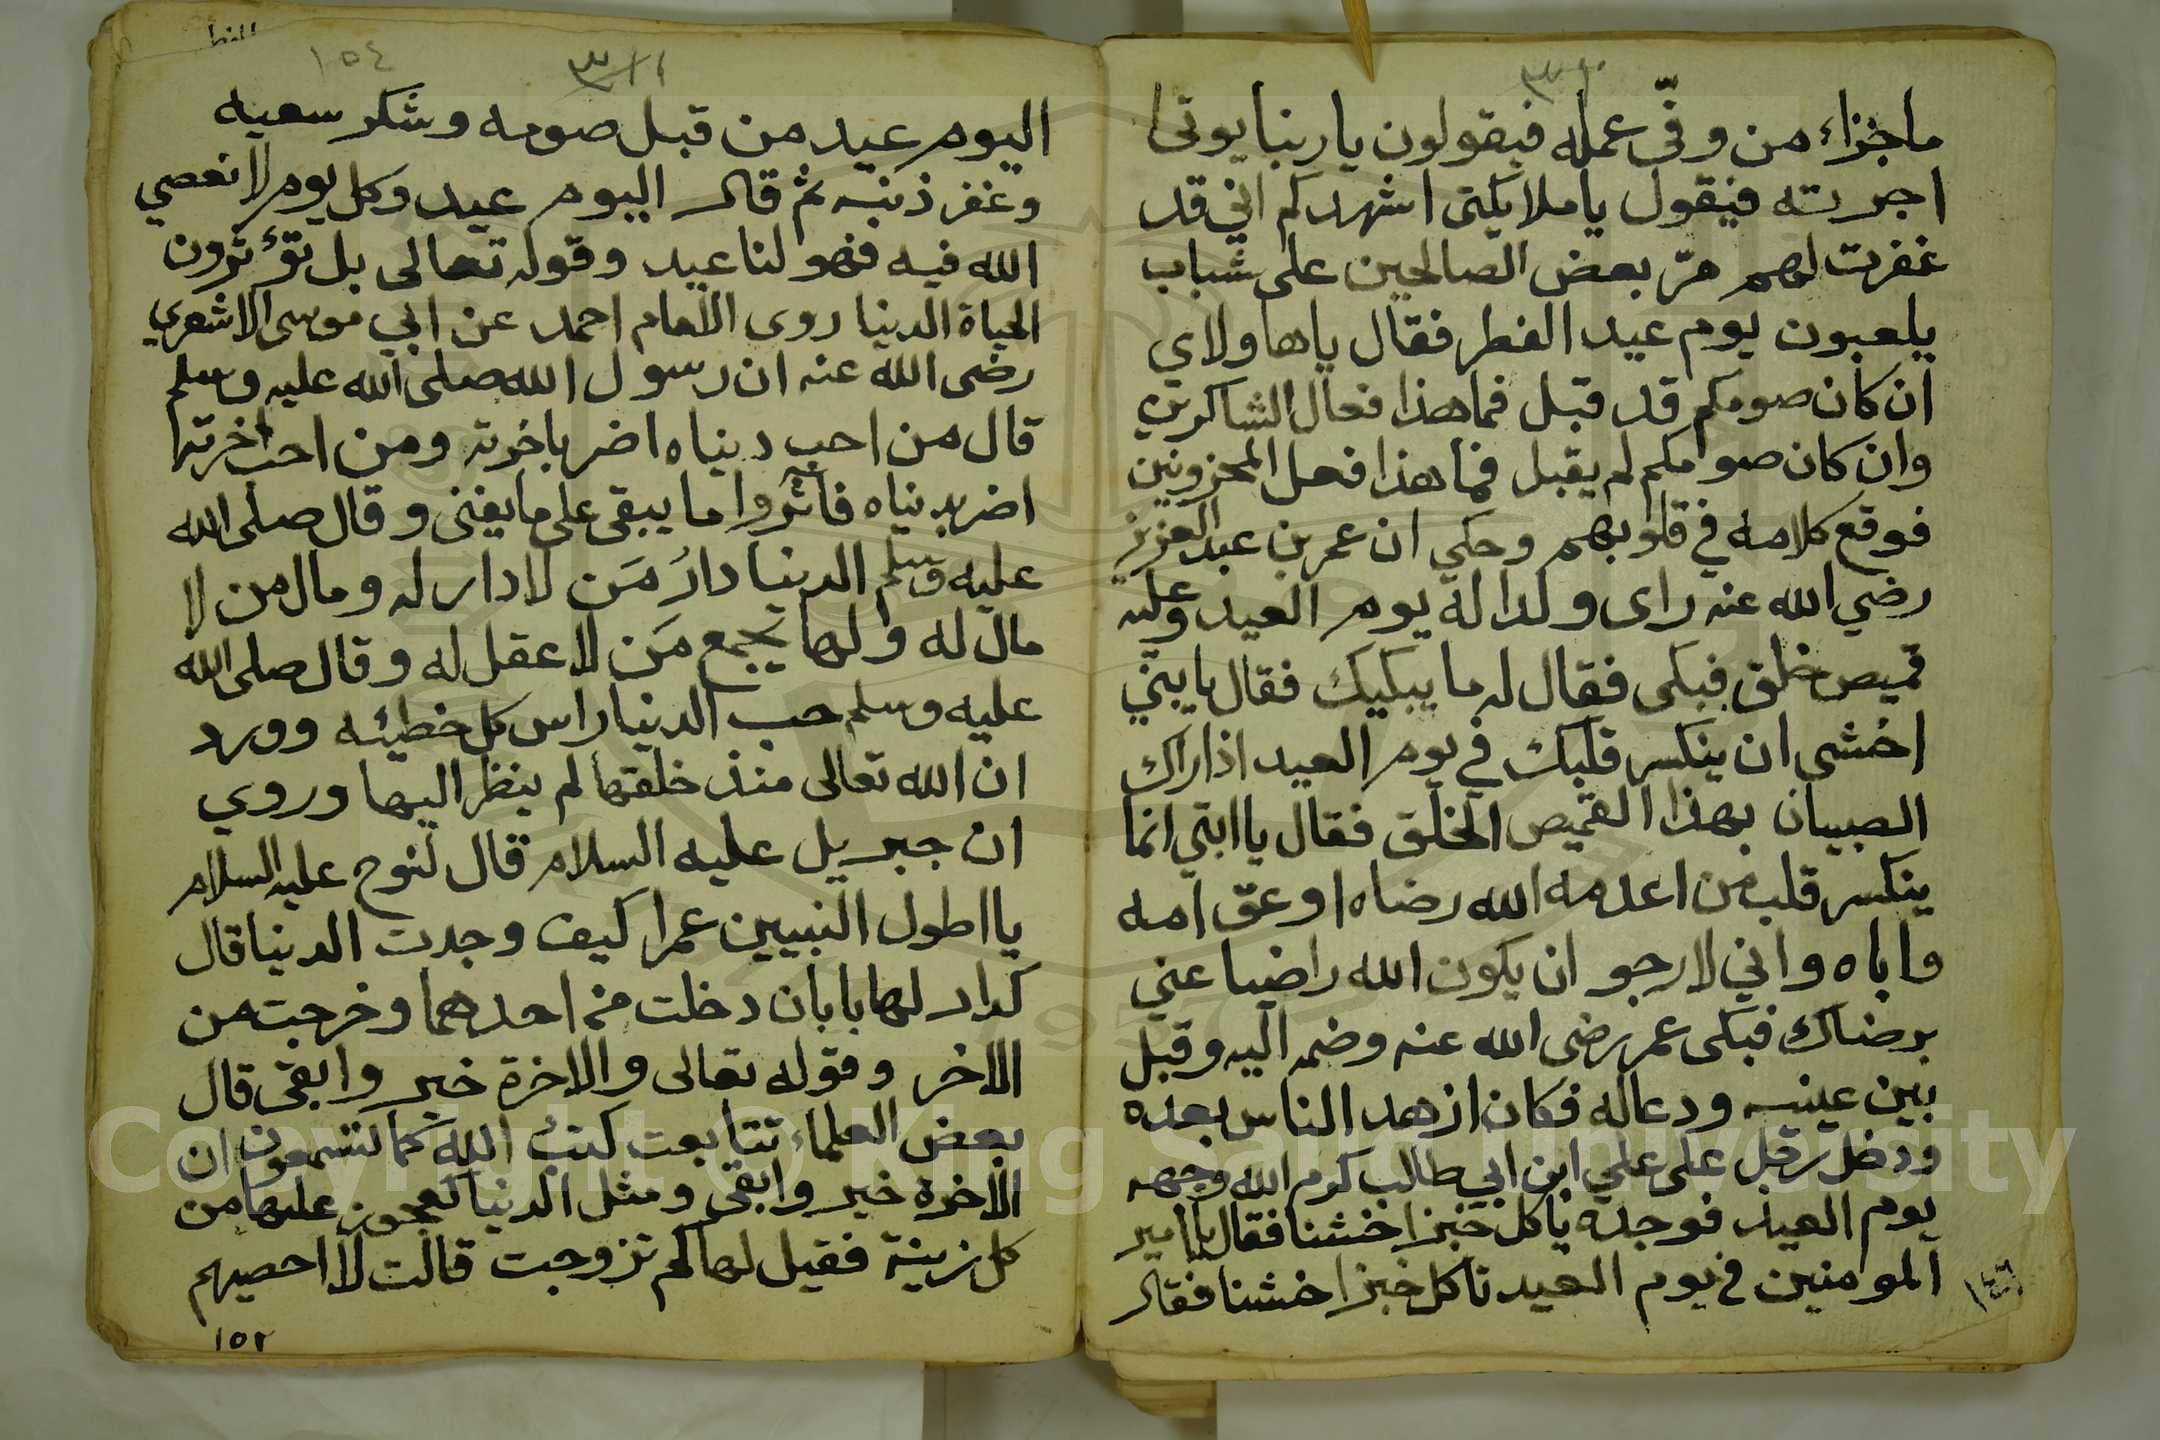 ٣١٠
ماجزاء من وفّى عمله فيقولون يا ربنا يوتى
اجرته فيقول يا ملايكتى اشهدكم اني قد
غفرت لهم مرّ بعض الصالحين على شباب
يلعبون يوم عيد الفطر فقال ياهاولاي
ان كان صومكم قد قبل فماهذا فعال الشاكرين
وان كان صومكم لم يقبل فماهذا فعل المحزونين
فوقع كلامه في قلوبهم وحكي ان عمر بن عبد العزيز
رضي الله عنه راى ولدا له يوم العيد وعليه
قميص خلق فبكى فقال له ما يبكيك فقال يا بنّي
اخشى ان ينكسر قلبك في يوم العيد اذاراك
الصبيان بهذا القميص الخلق فقال يا ابتي انما
ينكسر قلب من اعدمه الله رضاه او عق امه
واباه واني لارجو ان يكون الله راضيا عني
برضاك فبكى عمر رضى الله عنه وضمه اليه وقبل
بين عينيه ودعاله فكان ازهد الناس بعده
ودخل رجل على علي ابن ابي طالب كرم الله وجهه
يوم العيد فوجده ياكل خبزا خشنا فقال يا امير
المومنين في يوم العيد تاكل خبزا خشنا فقال
١٤٦
١٥٤
٣١١
اليوم عيد من قبل صومه وشكر سعيه
وغفر ذنبه ثم قال اليوم عيد وكل يوم لا نعصي
الله فيه فهو لنا عيد وقوله تعالى بل تؤثرون
الحياة الدنيا روى الامام احمد عن ابي موسى الاشعري
رضى الله عنه ان رسول الله صلى الله عليه وسلم
قال من احب دنياه اضر باخرته ومن احب اخرته
اضر بدنياه فآثروا ما يبقى على ما يفنى وقال صلى الله
عليه وسلم الدنيا دارُ مَن لا دار له ومال من لا
مال له ولها يجمع مَن لا عقل له وقال صلى الله
عليه وسلم حب الدنيا راس كل خطيئه وورد
ان الله تعالى منذ خلقها لم ينظر اليها وروي
ان جبريل عليه السلام قال لنوح عليه السلام
يا اطول النبيين عمرا كيف وجدت الدنيا قال
كدار لها بابان دخلت من احدهما وخرجت من
الاخر وقوله تعالى والاخرة خير وابقى قال
بعض العلماء تتابعت كتبُ الله كما تسمعون ان
الاخرة خير وابقى ومثل الدنيا كعجوز عليها من
كل زينة فقيل لها كم تزوجت قالت لا احصيهم
١٥٢
Copyright © King Saud University